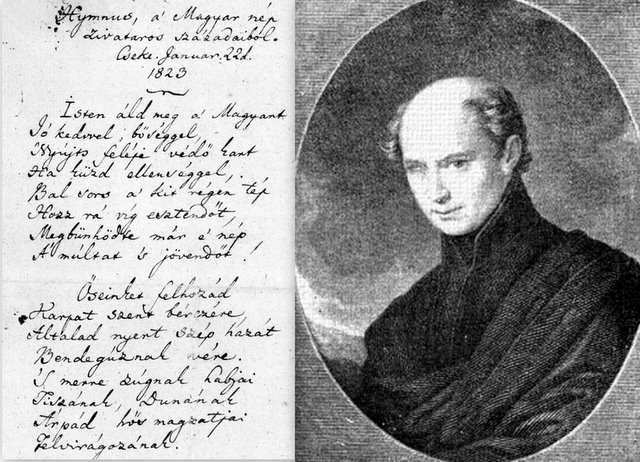 Hymnus, a' Magyar nép
zivataros századaiból.
Cseke. Január. 22d.
1823
Isten áld meg a' Magyart
Jó kedvvel, bőséggel,
Nyújts feléje védő kart
Ha küzd ellenséggel,
Bal sors a' kit régen tép
Hozz rá víg esztendőt,
Megbűnhödte már e' nép
A' múltat 's jövendőt!
Őseinket felhozád
Kárpat szent bérczére,
Általad nyert szép hazát
Bendegúznak vére.
'S merre zúgnak habjai
Tiszának, Dunának
Árpád hős magzatjai
Felvirágozának.